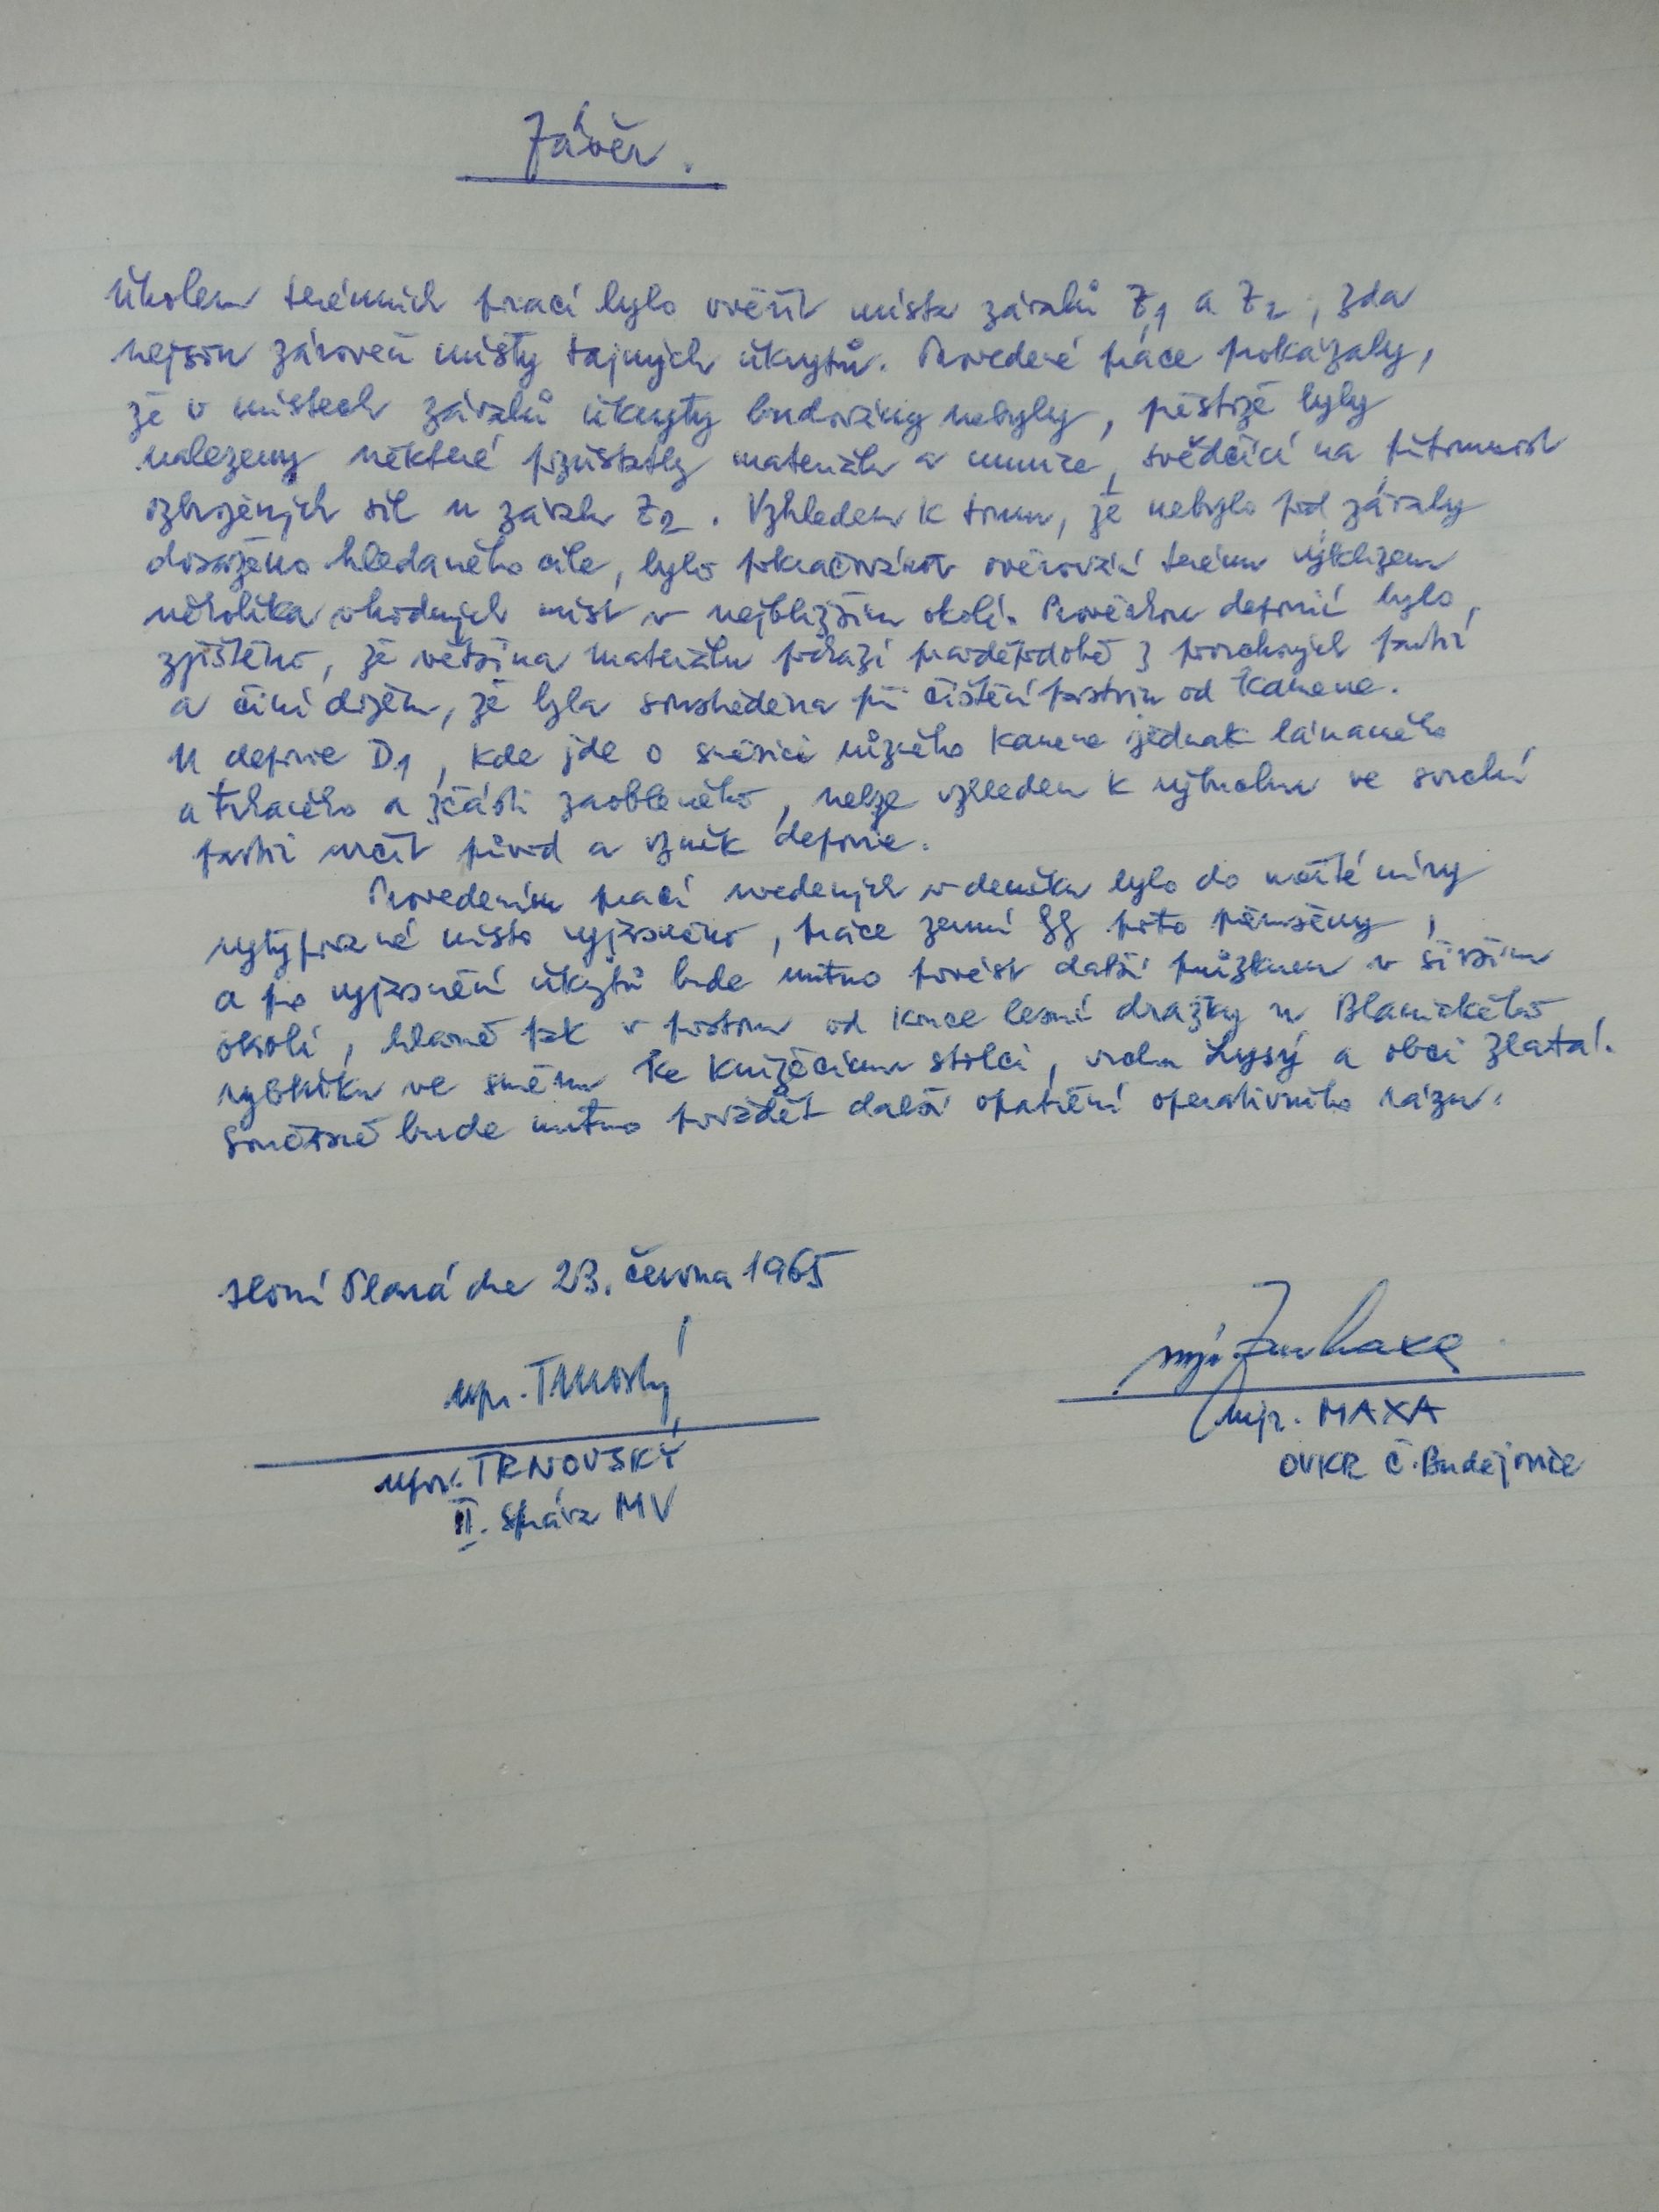 Závěr.
Úkolem terénních prací bylo ověřit místa závalů Z1 a Z2, zda
nejsou zároveň místy tajných úkrytů. Provedené práce prokázaly,
že v místech závalů úkryty budovány nebyly, přestože byly
nalezeny některé pozůstatky materiálu a munice, svědčící na přítomnost
ozbrojených sil u závalu Z2. Vzhledem k tomu, že nebylo pod závaly
dosaženo hledaného cíle, bylo pokračováno v ověřování terénu výklizem
několika vhodných míst v nejbližším okolí. Prověrkou deponií bylo
zjištěno, že většina materiálu pochází pravděpodobně z povrchových partií
a činí dojem, že byla soustředěna při čištění pastvin od kamene.
U deponie D1, kde jde o směsici různého kamene jednak lámaného
a trhaného a zčásti zaobleného, nelze vzhledem k výkolu ve svrchní
partii určit původ a vznik deponie.
Provedením prací uvedených v deníku bylo do určité míry
vytypované místo vyjasněno, práce zemní proto přerušeny,
a pro vyjasnění úkrytů bude nutno provést další průzkum v širším
okolí, hlavně pak v prostoru od konce lesní dražky u Blanického
rybníka ve směru ke Knížecímu stolci, vrchu Lysý a obci Zlatá.
Současně bude nutno provádět další opatření operativního rázu.
Horní Planá dne 23. června 1965
npor. Trnovský
npor. TRNOVSKÝ
II. správa MV
mjr. Maxa
mjr. MAXA
OVKR Č. Budějovice